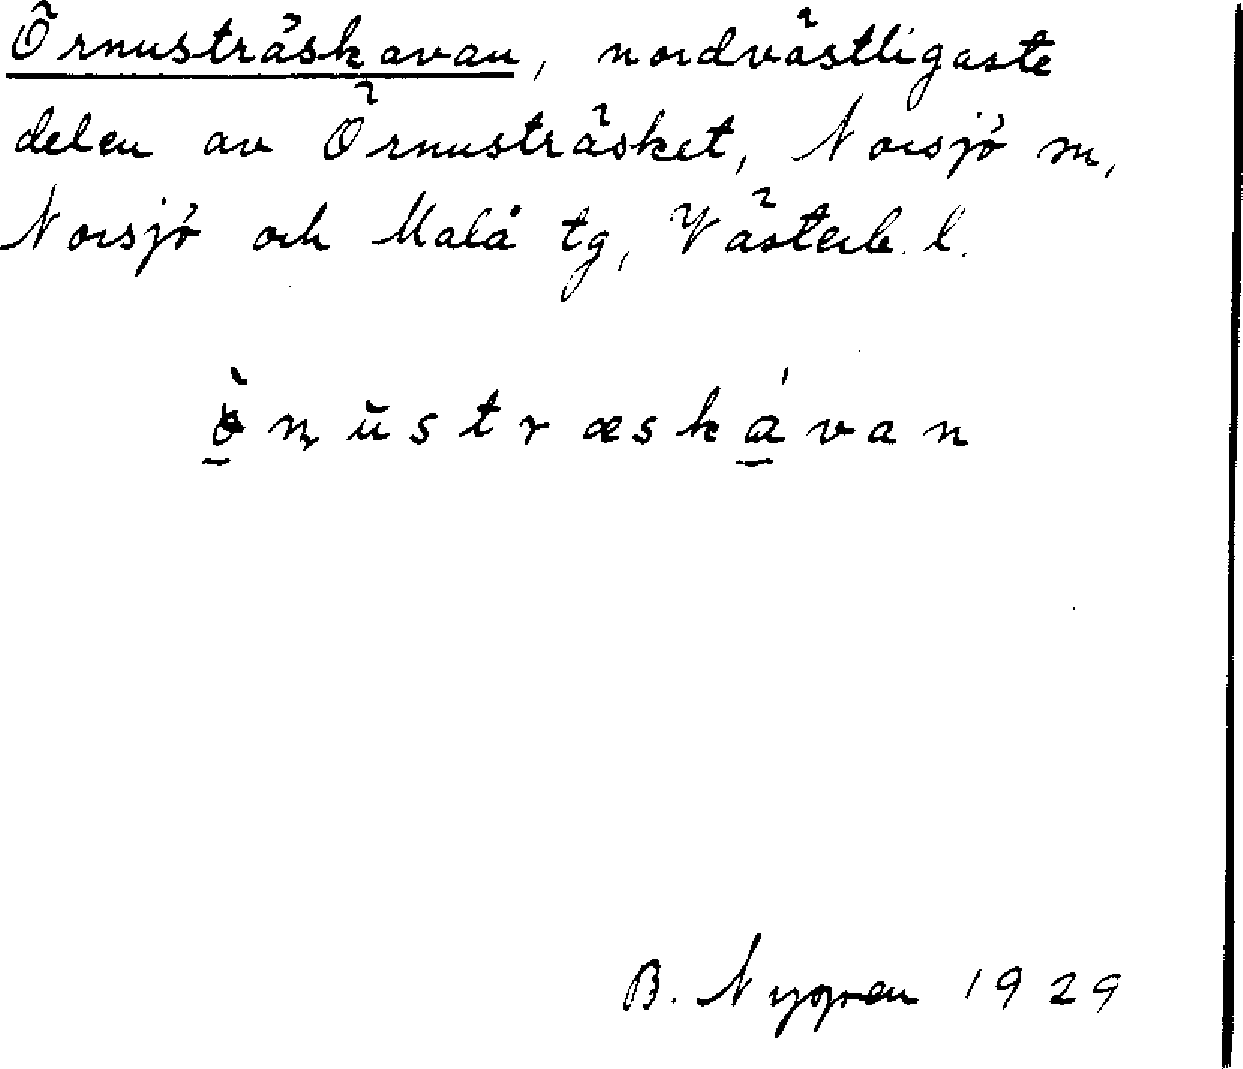 Örnusträskavan, nordvästligaste
delen av Örnusträsket, Norsjö sn,
Norsjö och Malå tg, Västerb. l.
ö̱̀nŭstræská̱van
B. Nygren 1929